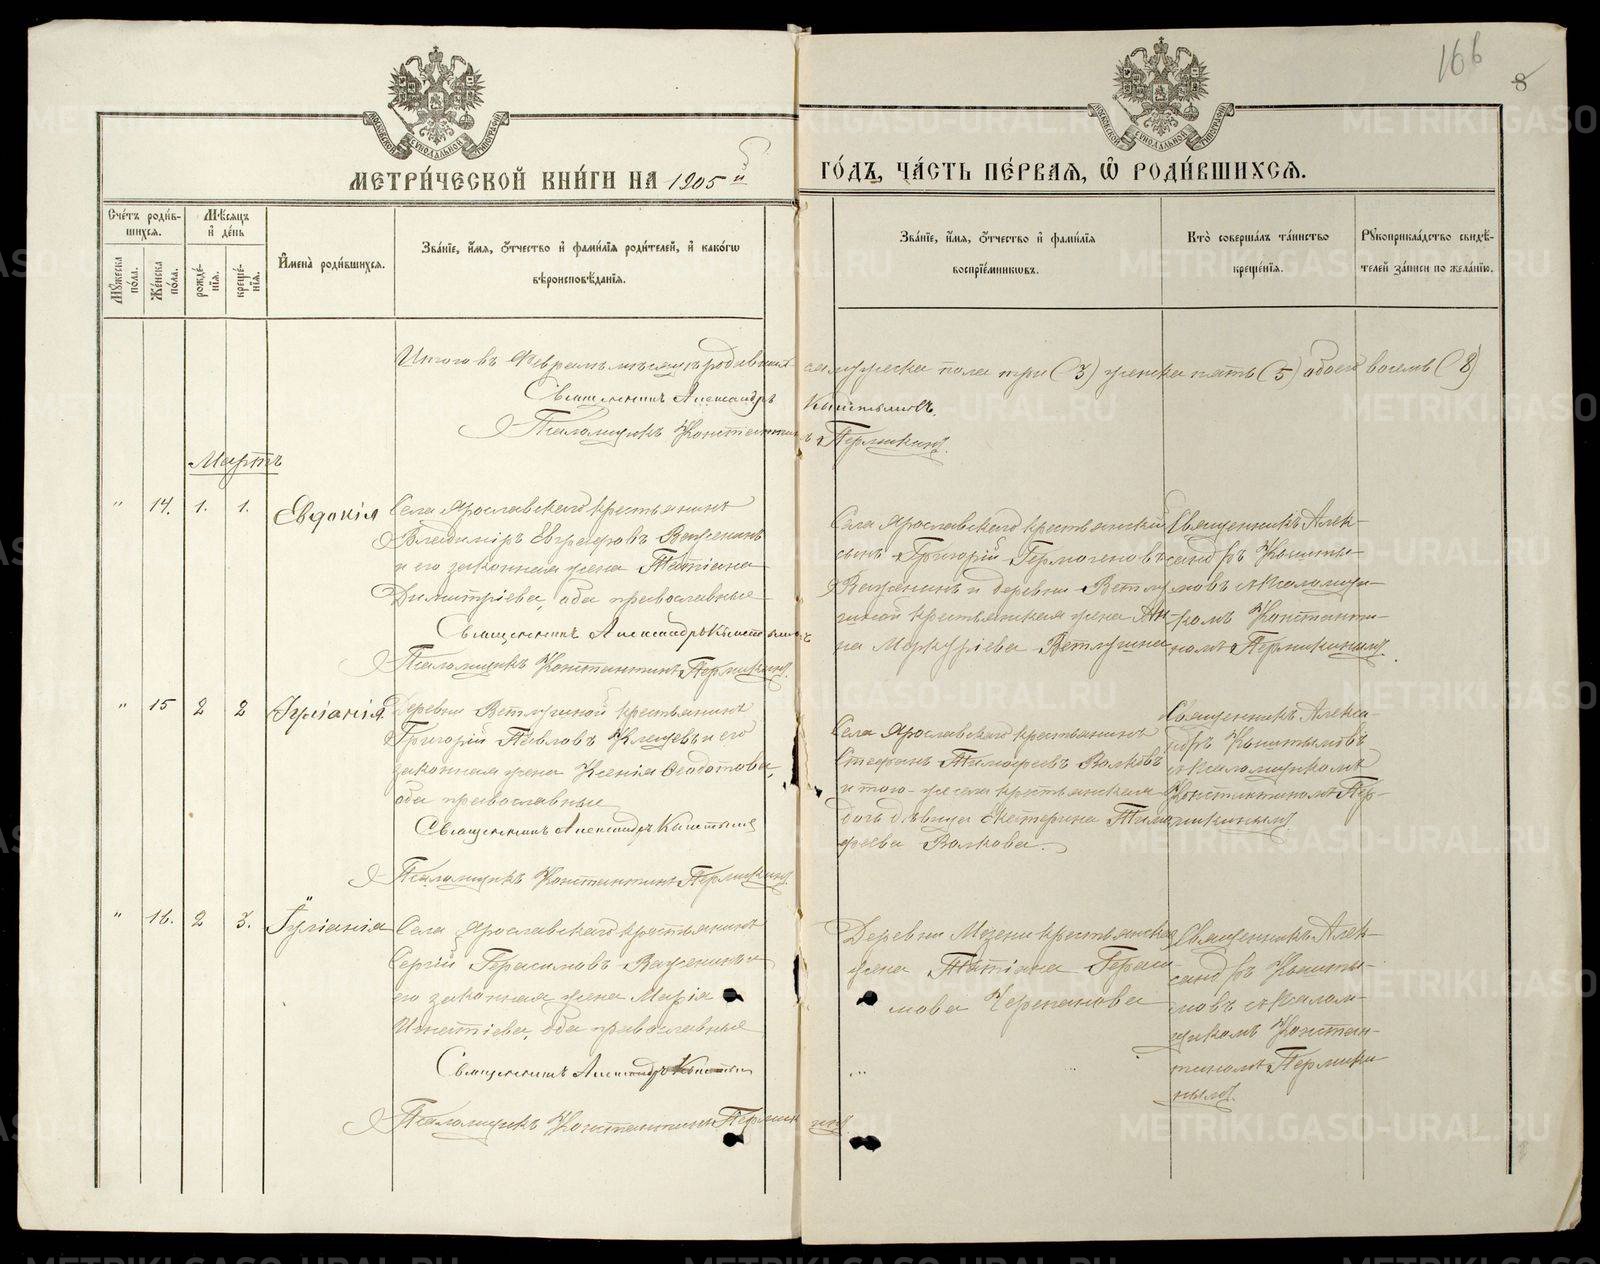 166
8
МОСКОВСКОЙ СѴНОДАЛЬНОЙ ТИПОГРАФІИ
МОСКОВСКОЙ СѴНОДАЛЬНОЙ ТИПОГРАФІИ
МЕТРИ́ЧЕСКОЙ КНИ́ГИ НА 1905й
ГО́ДЪ, ЧА́СТЬ ПЕ́РВАѦ, Ѡ҆ РОДИ́ВШИХСѦ.
Сче́тъ роди́в-
шихсѧ.
Мꙋ́жеска по́ла.
Же́нска по́ла.
Мѣ́сѧцъ и҆ де́нь
рожде́-
нїѧ.
креще́-
нїѧ.
И҆мена̀ роди́вшихсѧ.
Зва́нїе, и҆́мѧ, ѻ҆́тчество и҆ фами́лїѧ роди́телей, и҆ како́гѡ
вѣроисповѣ́данїѧ.
Зва́нїе, и҆́мѧ, ѻ҆́тчество и҆ фами́лїѧ
воспрїе́мникѡвъ.
Кто̀ соверша́лъ та́инство
креще́нїѧ.
Рꙋкоприкла́дство свидѣ́-
телей за́писи по жела́нїю.
Итого въ Феврале месяце родившихся мужеска пола три (3) женска пять (5) обоего восемь (8)
Священникъ Александръ Кыштымовъ.
Псаломщикъ Константинъ Пермикинъ.
Мартъ
" 14. 1. 1. Евдокія
Села Ярославскаго крестьянинъ
Владиміръ Евграфовъ Важенинъ
и его законная жена Татіана
Димитріева, оба православные
Священникъ Александръ Кыштымовъ
Псаломщикъ Константинъ Пермикинъ.
Села Ярославскаго крестьянскій
сынъ Григорій Гермогеновъ
Важенинъ и деревни Ветлу-
гиной крестьянская жена Ан-
на Меркуріева Ветлугина
Священникъ Алек-
сандръ Кышты-
мовъ съ псаломщи-
комъ Константи-
номъ Пермикинымъ.
" 15 2 2 Іуліанія
Деревни Ветлугиной крестьянинъ
Григорій Павловъ Клещевъ и его
законная жена Ксенія Феодотова,
оба православные
Священникъ Александръ Кыштымовъ
Псаломщикъ Константинъ Пермикинъ.
Села Ярославскаго крестьянинъ
Стефанъ Тимофеевъ Волковъ
и того-же села крестьянская
дочь дѣвица Екатерина Тимо-
феева Волкова.
Священникъ Алекса-
ндръ Кыштымовъ
съ псаломщикомъ
Константиномъ Пер-
микинымъ.
" 16. 2 3. Іуліанія
Села Ярославскаго крестьянинъ
Сергій Герасимовъ Важенинъ и
его законная жена Марія
Игнатіева, оба православные
Священникъ Александръ Кыштымовъ
Псаломщикъ Константинъ Пермикинъ.
Деревни Мезени крестьянская
жена Татіана Гераси-
мова Черепанова
Священникъ Алек-
сандръ Кышты-
мовъ съ псалом-
щикомъ Констан-
тиномъ Пермики-
нымъ.
METRIKI.GASO-URAL.RU